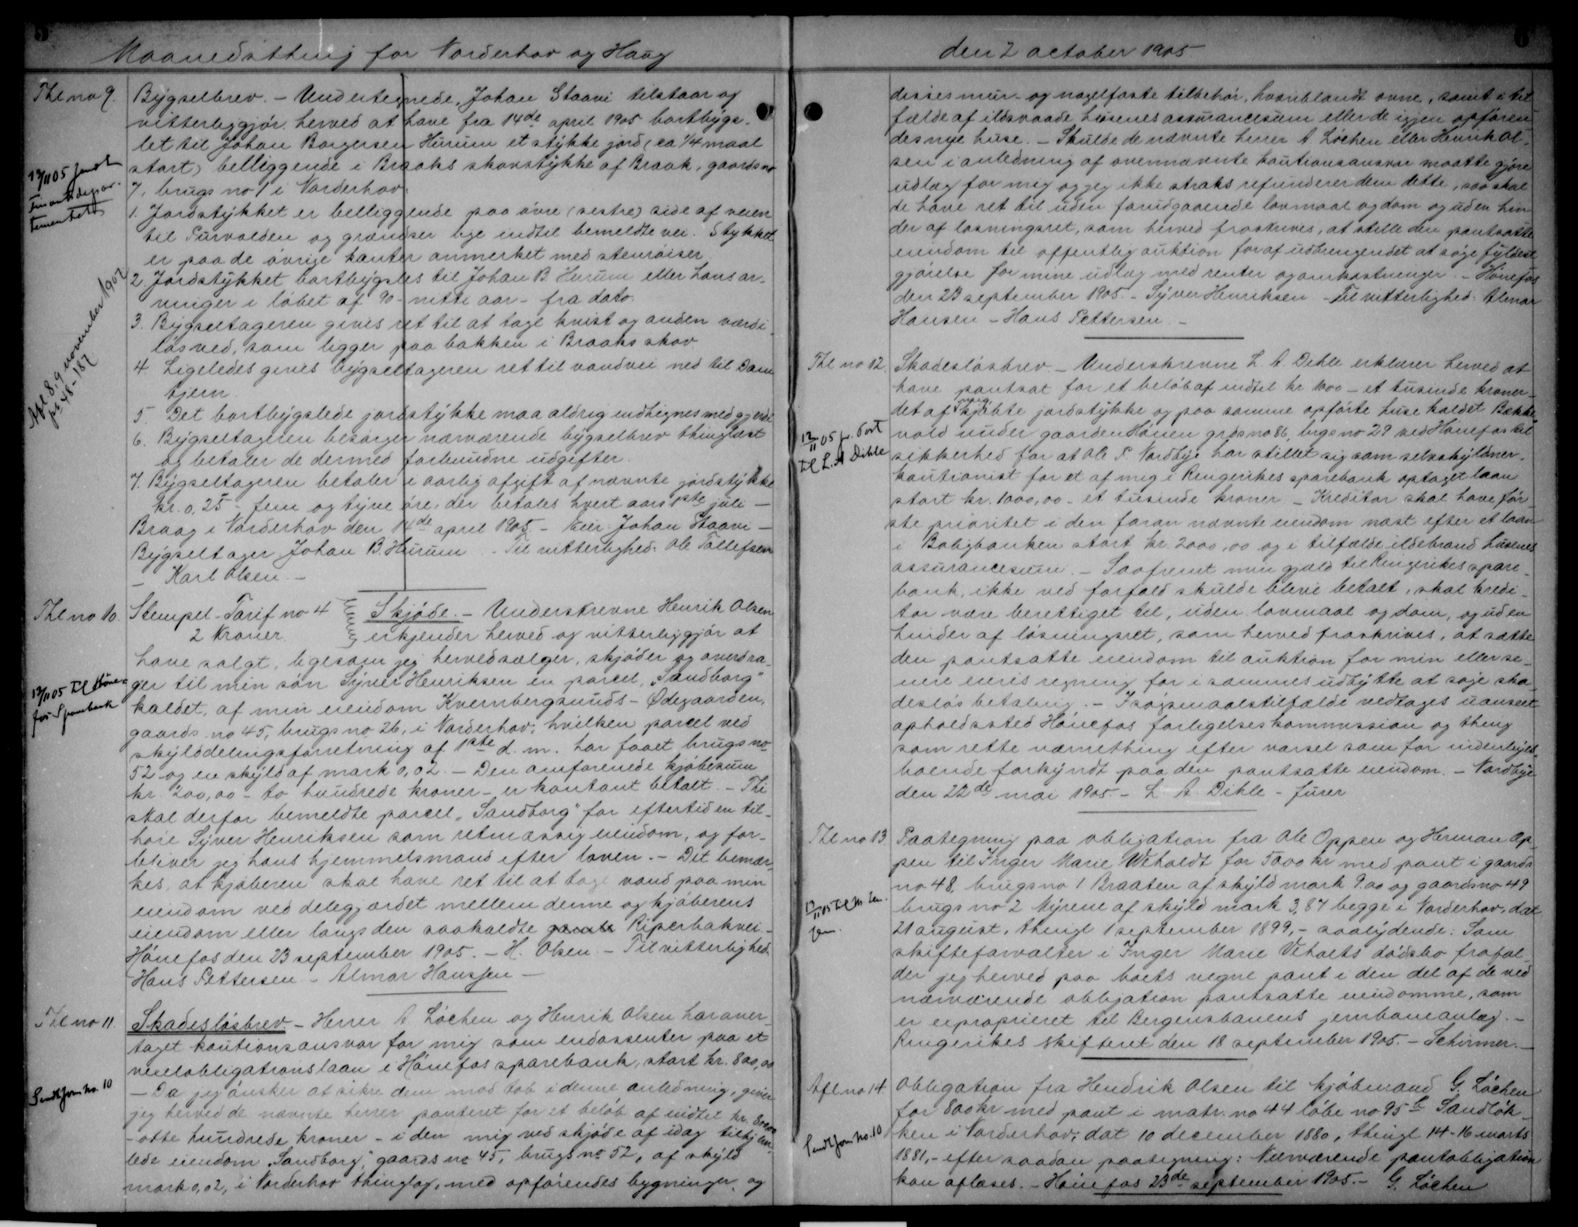 Maanedsthing for Norderhov og Haug
Thl no 9.
Bygselbrev. – Undertegnede, Johan Staavi tilstaar og
vitterliggjør herved at have fra 14de april 1905 bortbygs-
let til Johan Borgersen Hurum et stykke jord (ca 1/4 maal
stort) beliggende i Braaks skovstykke af Braak, gaards no
7, brugs no 1 i Norderhov.
1. Jordstykket er beliggende paa øvre (vestre) side af veien
til Purvolden og grændser lige indtil bemeldte vei. Stykket
er paa de øvrige kanter anmerket med stenrøiser
2. Jordstykket bortbygsles til Johan B. Hurum eller hans ar-
vinger i løbet af 90 – nitti aar – fra dato.
3. Bygseltageren gives ret til at tage kvist og anden værdi-
løs ved, som ligger paa bakken i Braaks skov
4. Ligeledes gives bygseltageren ret til vandvei ned til Dam-
tjern.
5. Det bortbygslede jordstykke maa aldrig indhegnes med gjerde
6. Bygseltageren besørger nærværende bygselbrev thinglæst
og betaler de dermed forbundne udgifter.
7. Bygseltageren betaler i aarlig afgift af nævnte jordstykke
kr. 0,25 – fem og tyve øre, der betales hvert aars 1ste juli –
Braag i Norderhov den 14de april 1905 – Eier: Johan Staavi –
Bygseltager Johan B. Hurum. – Til vitterlighed: Ole Tollefsen
– Karl Olsen. –
12/11 05 sendt
Finantsdepar-
tementet
Afl. 8, 9 november 1907
pr 48-187
Thl no 10.
Stempel-Tarif no 4
2 kroner.
Skjøde. – Underskrevne Henrik Olsen
erkjender herved og vitterliggjør at
have solgt, ligesom jeg herved sælger, skjøder og overdra-
ger til min søn Syver Henriksen en parcel, "Sandborg"
kaldet, af min eiendom Kvernbergsunds-Ødegaarden,
gaards no 45, brugs no 26, i Norderhov; hvilken parcel ved
skylddelingsforretning af 1ste d. m. har faaet brugs no
52 og en skyld af mark 0,02. – Den omforenede kjøbesum
kr 200,00 – to hundrede kroner – er kontant betalt. – Thi
skal derfor bemeldte parcel "Sandborg" for eftertiden til-
høre Syver Henriksen som retmæssig eiendom, og for-
bliver jeg hans hjemmelsmand efter loven. – Det bemær-
kes, at kjøberen skal have ret til at tage vand paa min
eiendom ved delegjærdet mellem denne og kjøberens
eiendom eller langs den saakaldte Piperbakvei –
Hønefos den 23 september 1905. – H. Olsen. – Til vitterlighed
Hans Pettersen – Almar Hanssen –
12/11 05 til Høne-
fos Sparebank
Thl no 11.
Skadesløsbrev – Herrer A Løchen og Henrik Olsen har over-
taget kautionsansvar for mig som endossenter paa et
vexelobligationslaan i Hønefos sparebank, stort kr. 800,00
– Da jeg ønsker at sikre dem mod tab i denne anledning, giver
jeg herved de nævnte herrer panteret for et beløb af indtil kr. 800,00
– otte hundrede kroner – i den mig ved skjøde af idag tilhjem-
lede eiendom "Sandborg", gaards no 45, brugs no 52, af skyld
mark 0,02, i Norderhov thinglag, med opførendes bygninger og
Sendt Jour no. 10
den 2 october 1905
disses mur- og nagelfaste tilbehør, hvoriblandt ovne, samt i til-
fælde af ildsvaade husenes assurancesum eller de igjen opføren-
des nye huse. – Skulde de nævnte herrer A Løchen eller Henrik Ol-
sen i anledning af ovennævnte kautionsansvar maatte gjøre
udlæg for mig og jeg ikke straks refunderer dem dette, saa skal
de have ret til uden forudgaaende lovmaal og dom og uden hin-
der af løsningsret, som herved fraskrives, at stille den pantsatte
eiendom til offentlig auktion for af udbringendet at søge fyldest-
gjørelse for mine udlæg med renter og omkostninger. – Hønefos
den 23 september 1905. – Syver Henriksen – Til vitterlighed: Almar
Hansen – Hans Pettersen. –
Thl no 12.
Skadesløsbrev – Underskrevne L A Dihle erklærer herved at
have pantsat for et beløb af indtil kr 1000 – et tusinde kroner –
det af mig kjøbte jordstykke og paa samme opførte huse kaldet Bække-
vold under gaarden Hønen grds no 86, brgs no 29 ved Hønefos til
sikkerhed for at Ole P. Nordbye har stillet sig som selvskyldner-
kautionist for et af mig i Ringerikes sparebank optaget laan
stort kr. 1000,00 – et tusinde kroner. – Kreditor skal have før-
ste prioritet i den foran nævnte eiendom næst efter et laan
i Boligbanken stort kr. 2000,00 og i tilfælde ildebrand husenes
assurancesum. – Saafremt min gjæld til Ringerikes spare-
bank, ikke ved forfald skulde blive betalt, skal kredi-
tor være berettiget til, uden lovmaal og dom, og uden
hinder af løsningsret, som herved fraskrives, at sætte
den pantsatte eiendom til auktion for min eller se-
nere eieres regning for i sammes udbytte at søge ska-
desløs betaling. – I søgsmaalstilfælde vedtages uanseet
opholdssted Hønefos forligelseskommission og thing
som rette værnething efter varsel som for indenbygds-
boende forkyndt paa den pantsatte eiendom. – Nordbye
den 22de mai 1905 – L. A. Dihle – Furer
12/11 05 pr. Post
til L. A Dihle
Thl no 13.
Paategning paa obligation fra Ole Oppen og Herman Op-
pen til Inger Marie Weholdt for 5000 kr med pant i gaards
no 48, brugs no 1 Braaten af skyld mark 9.00 og gaards no 49
brugs no 2 Myrene af skyld mark 3,87 begge i Norderhov, dat
21 august, thingl 1 september 1899, – saalydende: Som
skifteforvalter i Inger Marie Veholts dødsbo frafal-
der jeg herved paa boets vegne pant i den del af de ved
nærværende obligation pantsatte eiendomme, som
er exproprieret til Bergensbanens jernbaneanlæg. –
Ringerikes skifteret den 18 september 1905. – Schirmer. –
12/11 05 til
Afl no 14
Obligation fra Hendrik Olsen til kjøbmand G. Løchen
for 800 kr med pant i matr. no 44 løbe no 95 b Sandløk-
ken i Norderhov; dat 10 december 1880, thingl 14-16 marts
1881, – efter saadan paategning: Nærværende pantobligation
kan aflæses. – Hønefos 23de september 1905. – G. Løchen
Sendt Jour no. 10